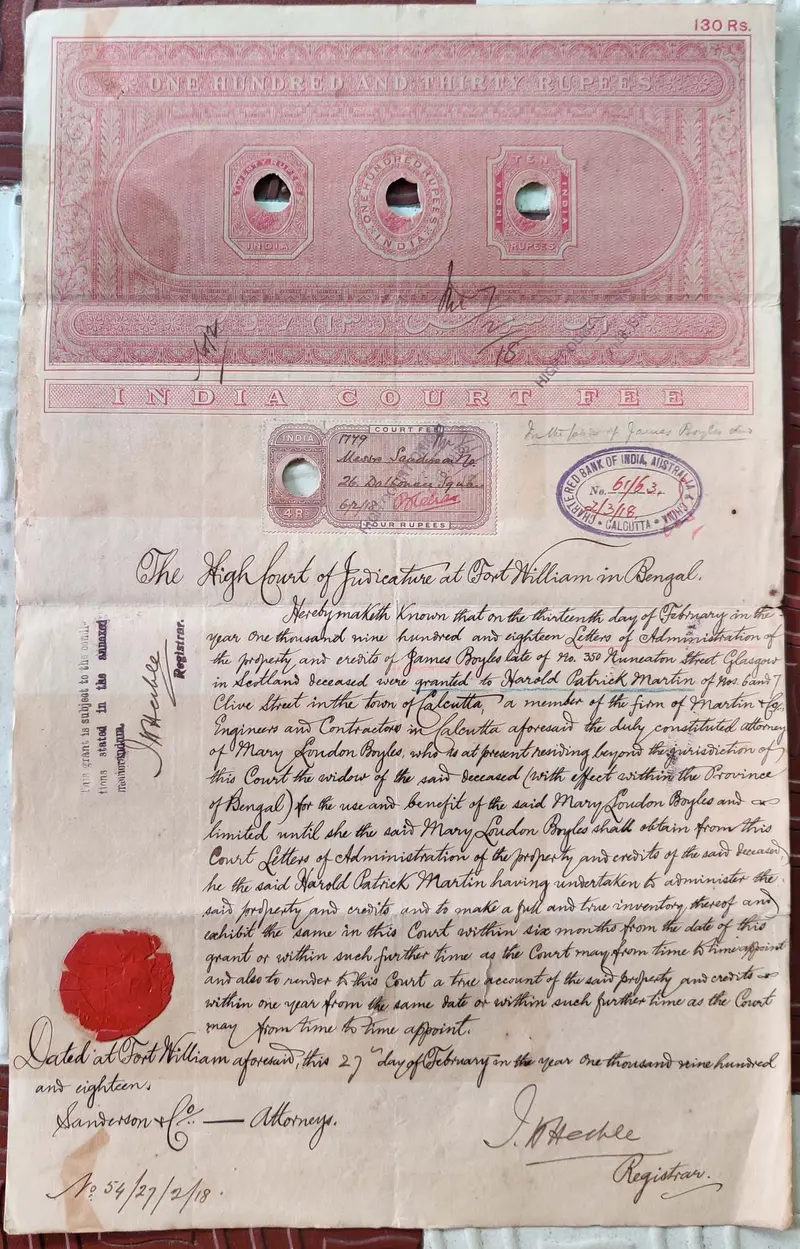 130 Rs.
ONE HUNDRED AND THIRTY RUPEES
TWENTY RUPEES
INDIA
ONE HUNDRED RUPEES
INDIA
TEN
INDIA
INDIA
RUPEES
7
2
18
INDIA COURT FEE
INDIA
COURT FEE
4 RS
FOUR RUPEES
1779
Messrs Sanderson & Co
26 Dalhousie Square
6/2/18
In the goods of James Boyles decd
CHARTERED BANK OF INDIA, AUSTRALIA & CHINA
No. 61/63.
2/3/18
CALCUTTA
The High Court of Judicature at Fort William in Bengal.
Hereby maketh known that on the thirteenth day of February in the
year one thousand nine hundred and eighteen Letters of Administration of
the property and credits of James Boyles late of No. 350 Nuneaton Street Glasgow
in Scotland deceased were granted to Harold Patrick Martin of Nos. 6 and 7
Clive Street in the town of Calcutta, a member of the firm of Martin & Co.
Engineers and Contractors in Calcutta aforesaid the duly constituted attorney
of Mary London Boyles, who is at present residing beyond the jurisdiction of
this Court the widow of the said deceased (with effect within the Province
of Bengal) for the use and benefit of the said Mary London Boyles and
limited until she the said Mary London Boyles shall obtain from this
Court Letters of Administration of the property and credits of the said deceased,
he the said Harold Patrick Martin having undertaken to administer the
said property and credits, and to make a full and true inventory thereof and
exhibit the same in this Court within six months from the date of this
grant or within such further time as the Court may from time to time appoint
and also to render to this Court a true account of the said property and credits
within one year from the same date or within such further time as the Court
may from time to time appoint.
This grant is subject to the condi-
tions stated in the annexed
memorandum.
Registrar.
Dated at Fort William aforesaid, this 27th day of February in the year one thousand nine hundred
and eighteen.
Sanderson & Co. — Attorneys.
Registrar.
No. 54/27/2/18.